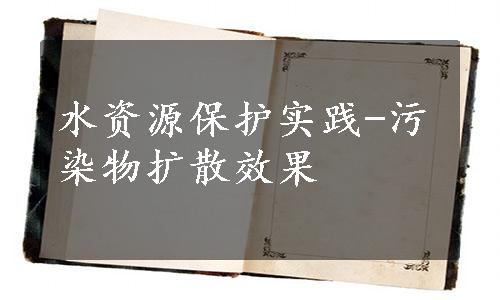 水资源保护实践-污
染物扩散效果